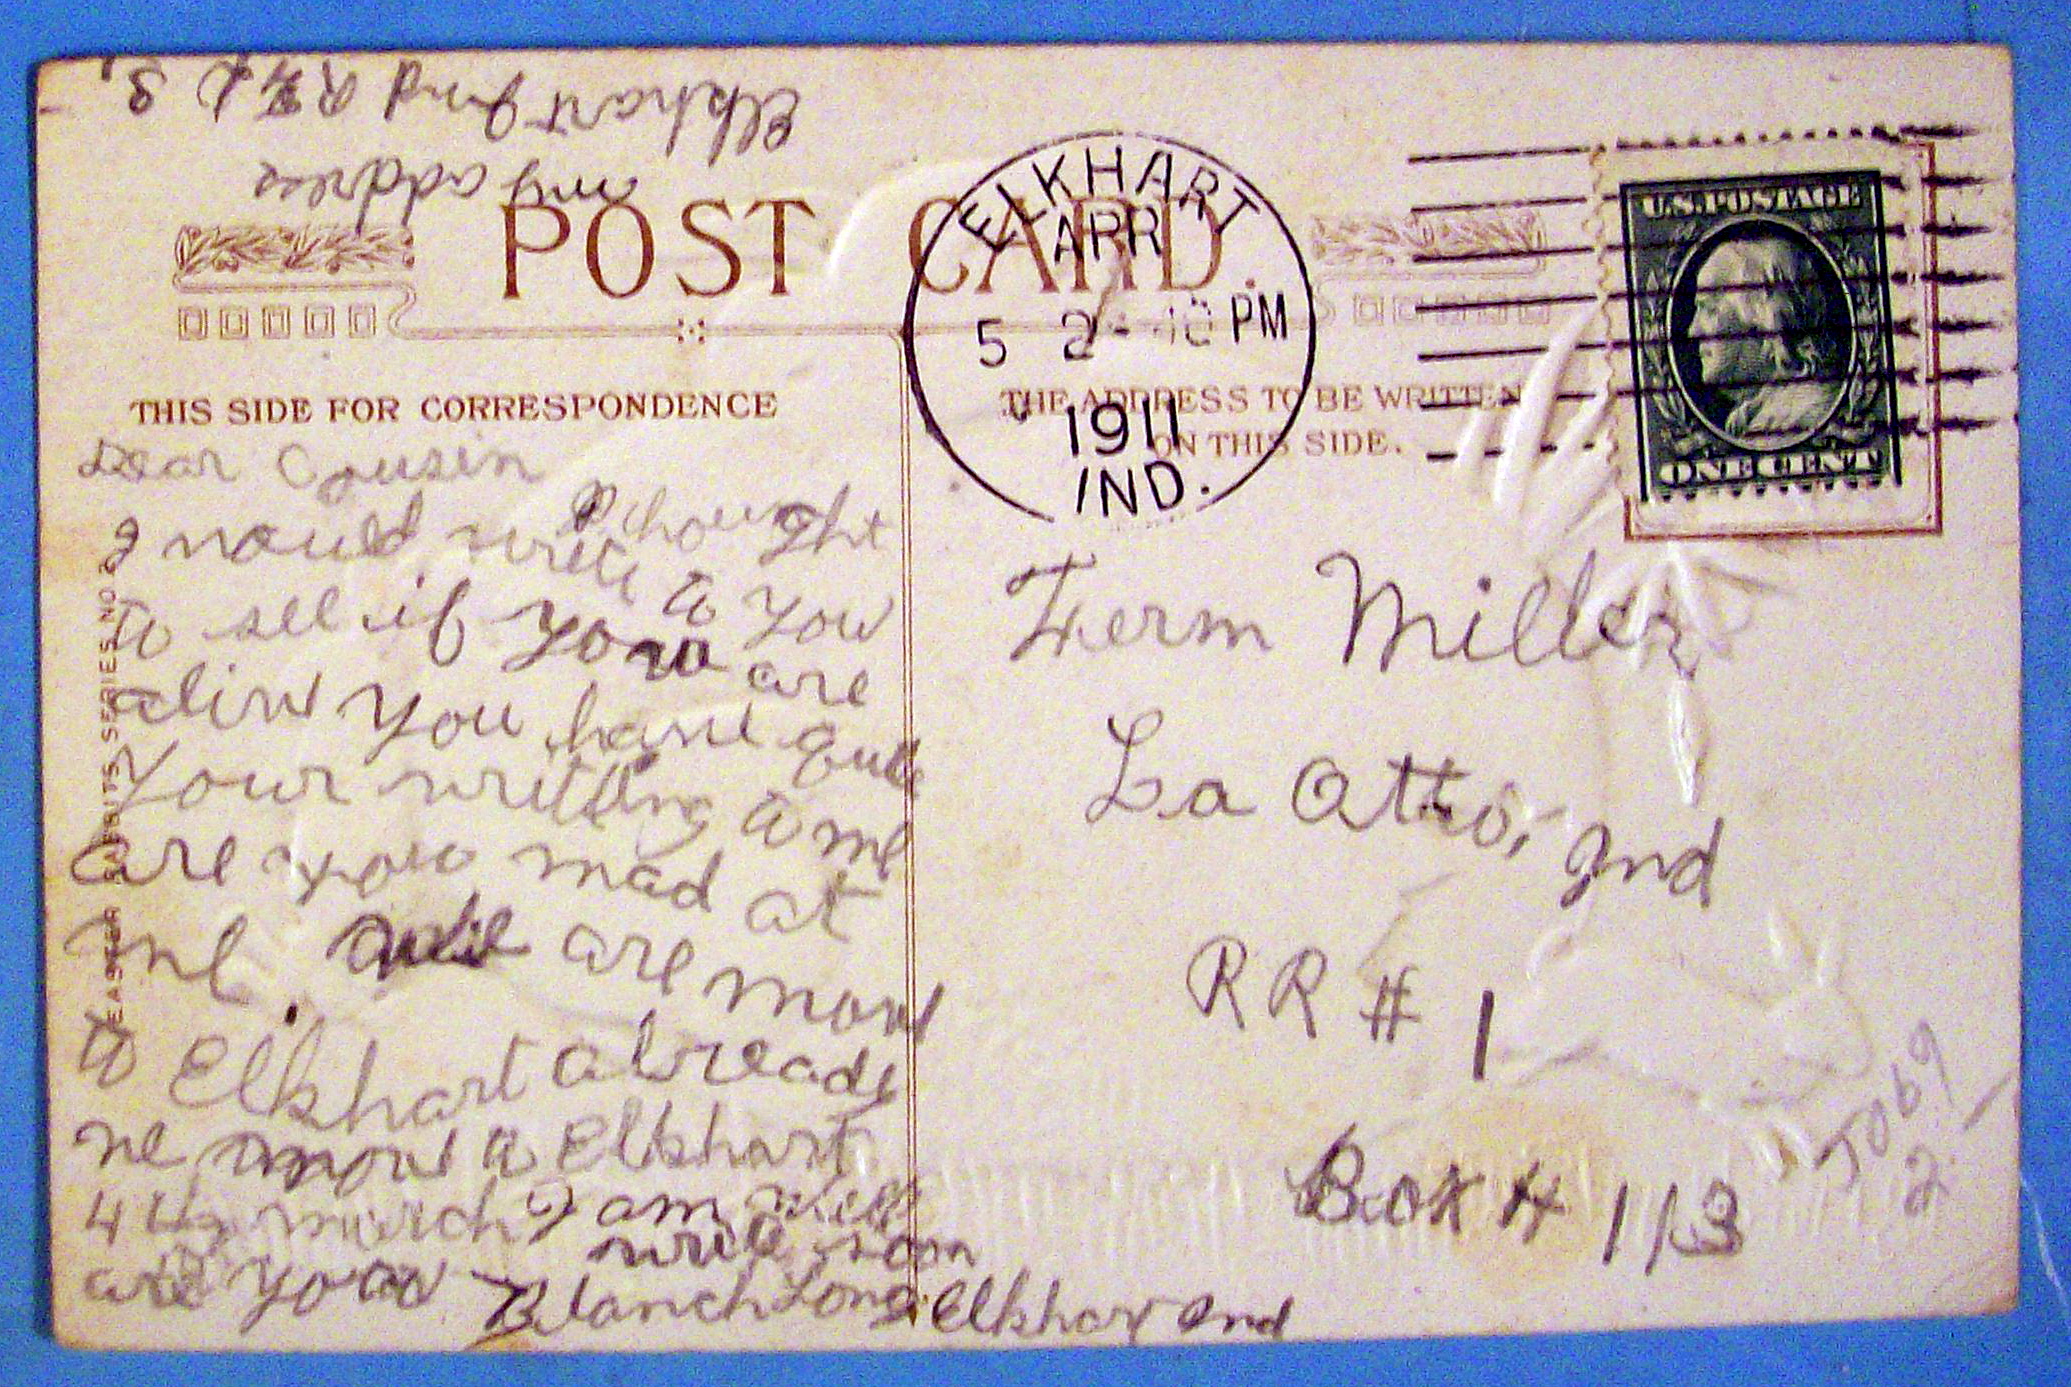 my address
Elkhart Ind R F D 3
POST CARD.
ELKHART
APR
5 2 PM
1911
IND.
U.S. POSTAGE
ONE CENT
THIS SIDE FOR CORRESPONDENCE
THE ADDRESS TO BE WRITTEN
ON THIS SIDE.
EASTER RABBITS SERIES NO 2
Dear Cousin
I thought
I would write to you
to see if you are
alive you have quit
your writting to me
are you mad at
me. are move
to Elkhart already
we move to Elkhart
4 march I am well
are you write soon
Blanch Long Elkhart Ind
Ferm Miller
La Otto, Ind
RR # 1
Box # 113
J069
2